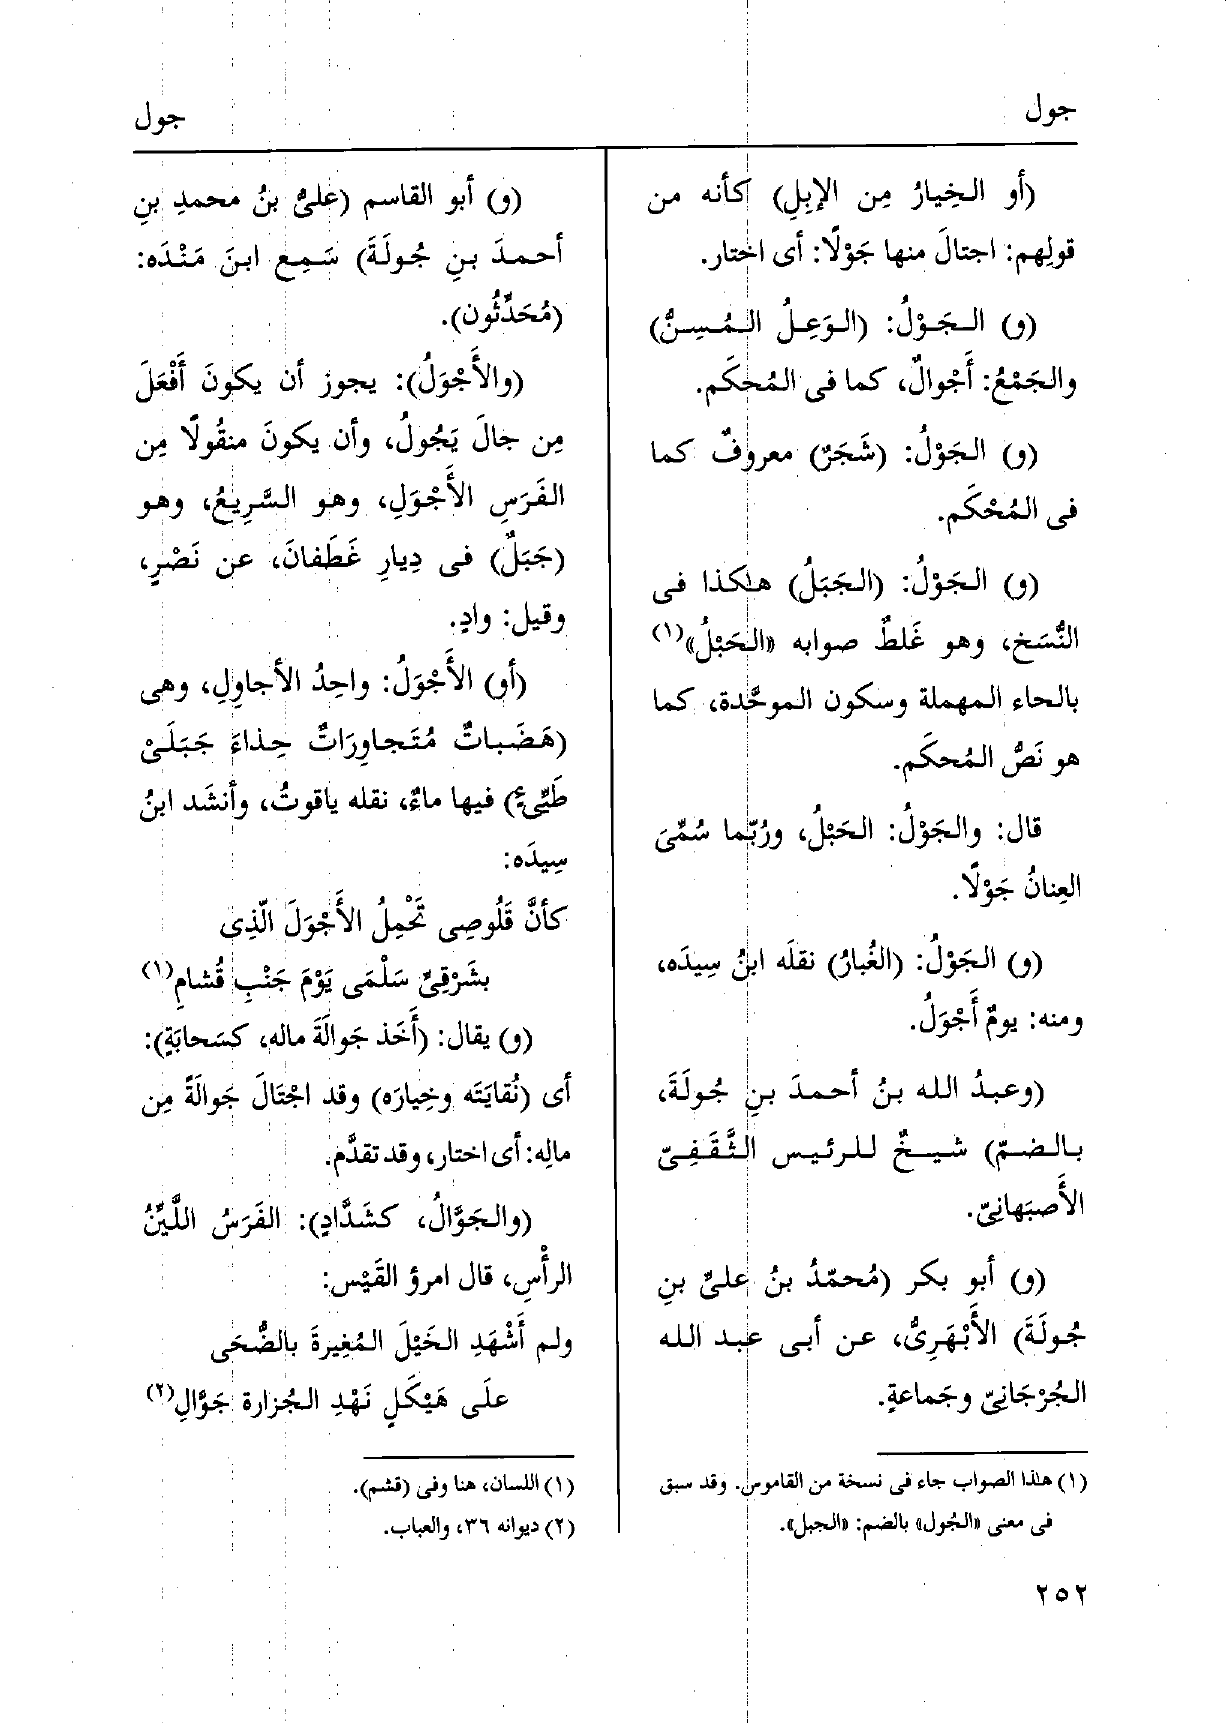 جول
جول
(أو الخِيارُ مِن الإبِلِ) كأنه من
قولِهم: اجتالَ منها جَوْلًا: أى اختار.
(و) الـجَـوْلُ: (الـوَعِـلُ الـمُـسِـنُّ)
والجَمْعُ: أَجْوالٌ، كما فى المُحكَم.
(و) الجَوْلُ: (شَجَرٌ) معروفٌ كما
فى المُحْكَم.
(و) الجَوْلُ: (الجَبَلُ) هٰكذا فى
النُّسَخ، وهو غَلطٌ صوابه «الحَبْلُ»(١)
بالحاء المهملة وسكون الموحَّدة، كما
هو نَصُّ المُحكَم.
قال: والجَوْلُ: الحَبْلُ، ورُبّما سُمِّىَ
العِنانُ جَوْلًا.
(و) الجَوْلُ: (الغُبارُ) نقلَه ابنُ سِيدَه،
ومنه: يومٌ أَجْوَلُ.
(وعبدُ الله بنُ أحمدَ بنِ جُولَةَ،
بـالـضـمّ) شـيـخٌ لـلـرئـيـس الـثَّـقَـفِـىّ
الأَصبَهانِىّ.
(و) أبو بكر (مُحمّدُ بنُ علىِّ بنِ
جُولَةَ) الأَبْهَرِىُّ، عن أبى عبد الله
الجُرْجَانِىّ وجَماعةٍ.
(١) هٰذا الصواب جاء فى نسخة من القاموس. وقد سبق
فى معنى «الجُول» بالضم: «الجبل».
٢٥٢
(و) أبو القاسم (علىُّ بنُ محمدِ بنِ
أحمدَ بنِ جُولَةَ) سَمِع ابنَ مَنْدَه:
(مُحَدِّثُون).
(والأَجْوَلُ): يجوز أن يكونَ أَفْعَلَ
مِن جالَ يَجُولُ، وأن يكونَ منقُولًا مِن
الفَرَسِ الأَجْوَلِ، وهو السَّرِيعُ، وهو
(جَبَلٌ) فى دِيارِ غَطَفانَ، عن نَصْرٍ،
وقيل: وادٍ.
(أو) الأَجْوَلُ: واحِدُ الأجاوِلِ، وهى
(هَضَباتٌ مُتَجاوِرَاتٌ حِذاءَ جَبَلَىْ
طَيِّىءٍ) فيها ماءٌ، نقله ياقوتُ، وأنشَد ابنُ
سِيدَه:
كأنَّ قَلُوصِى تَحْمِلُ الأَجْوَلَ الّذِى
بشَرْقِىِّ سَلْمَى يَوْمَ جَنْبِ قُشامِ(١)
(و) يقال: (أَخَذ جَوالَةَ ماله، كسَحابَةٍ):
أى (نُقايَتَه وخِيارَه) وقد اجْتَالَ جَوالَةً مِن
مالِه: أى اختار، وقد تقدَّم.
(والجَوَّالُ، كشَدَّادٍ): الفَرَسُ اللَّيِّنُ
الرأْسِ، قال امرؤ القَيْس:
ولم أَشْهَدِ الخَيْلَ المُغِيرةَ بالضُّحَى
علَى هَيْكَلٍ نَهْدِ الجُزارة جَوَّالِ(٢)
(١) اللسان، هنا وفى (قشم).
(٢) ديوانه ٣٦، والعباب.